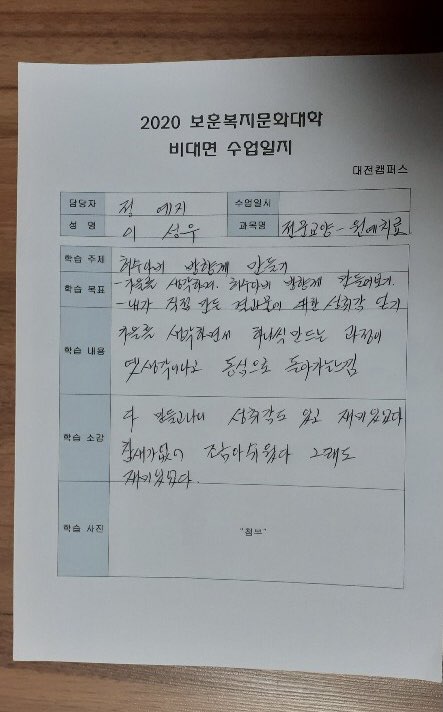 2020 보훈복지문화대학
비대면 수업일지
대전캠퍼스
담당자 정 예지 수업일시
성 명 이 성우 과목명 전문교양-원예치료
학습 주제 허수아비 방향제 만들기
학습 목표 -가을를 생각하며. 허수아비 방향제 만들어보기.
-내가 직접 만든 결과물에 대한 성취감 얻기
학습 내용 가을를 생각하면서 하나식 만드는 과정이
옛생각이나고 동심으로 돌아가는느낌
학습 소감 다 만들고나니 성취감도 있고 재미있었다
참새가없어 조금아쉬웠다 그래도
재미있었다.
학습 사진 "첨부"